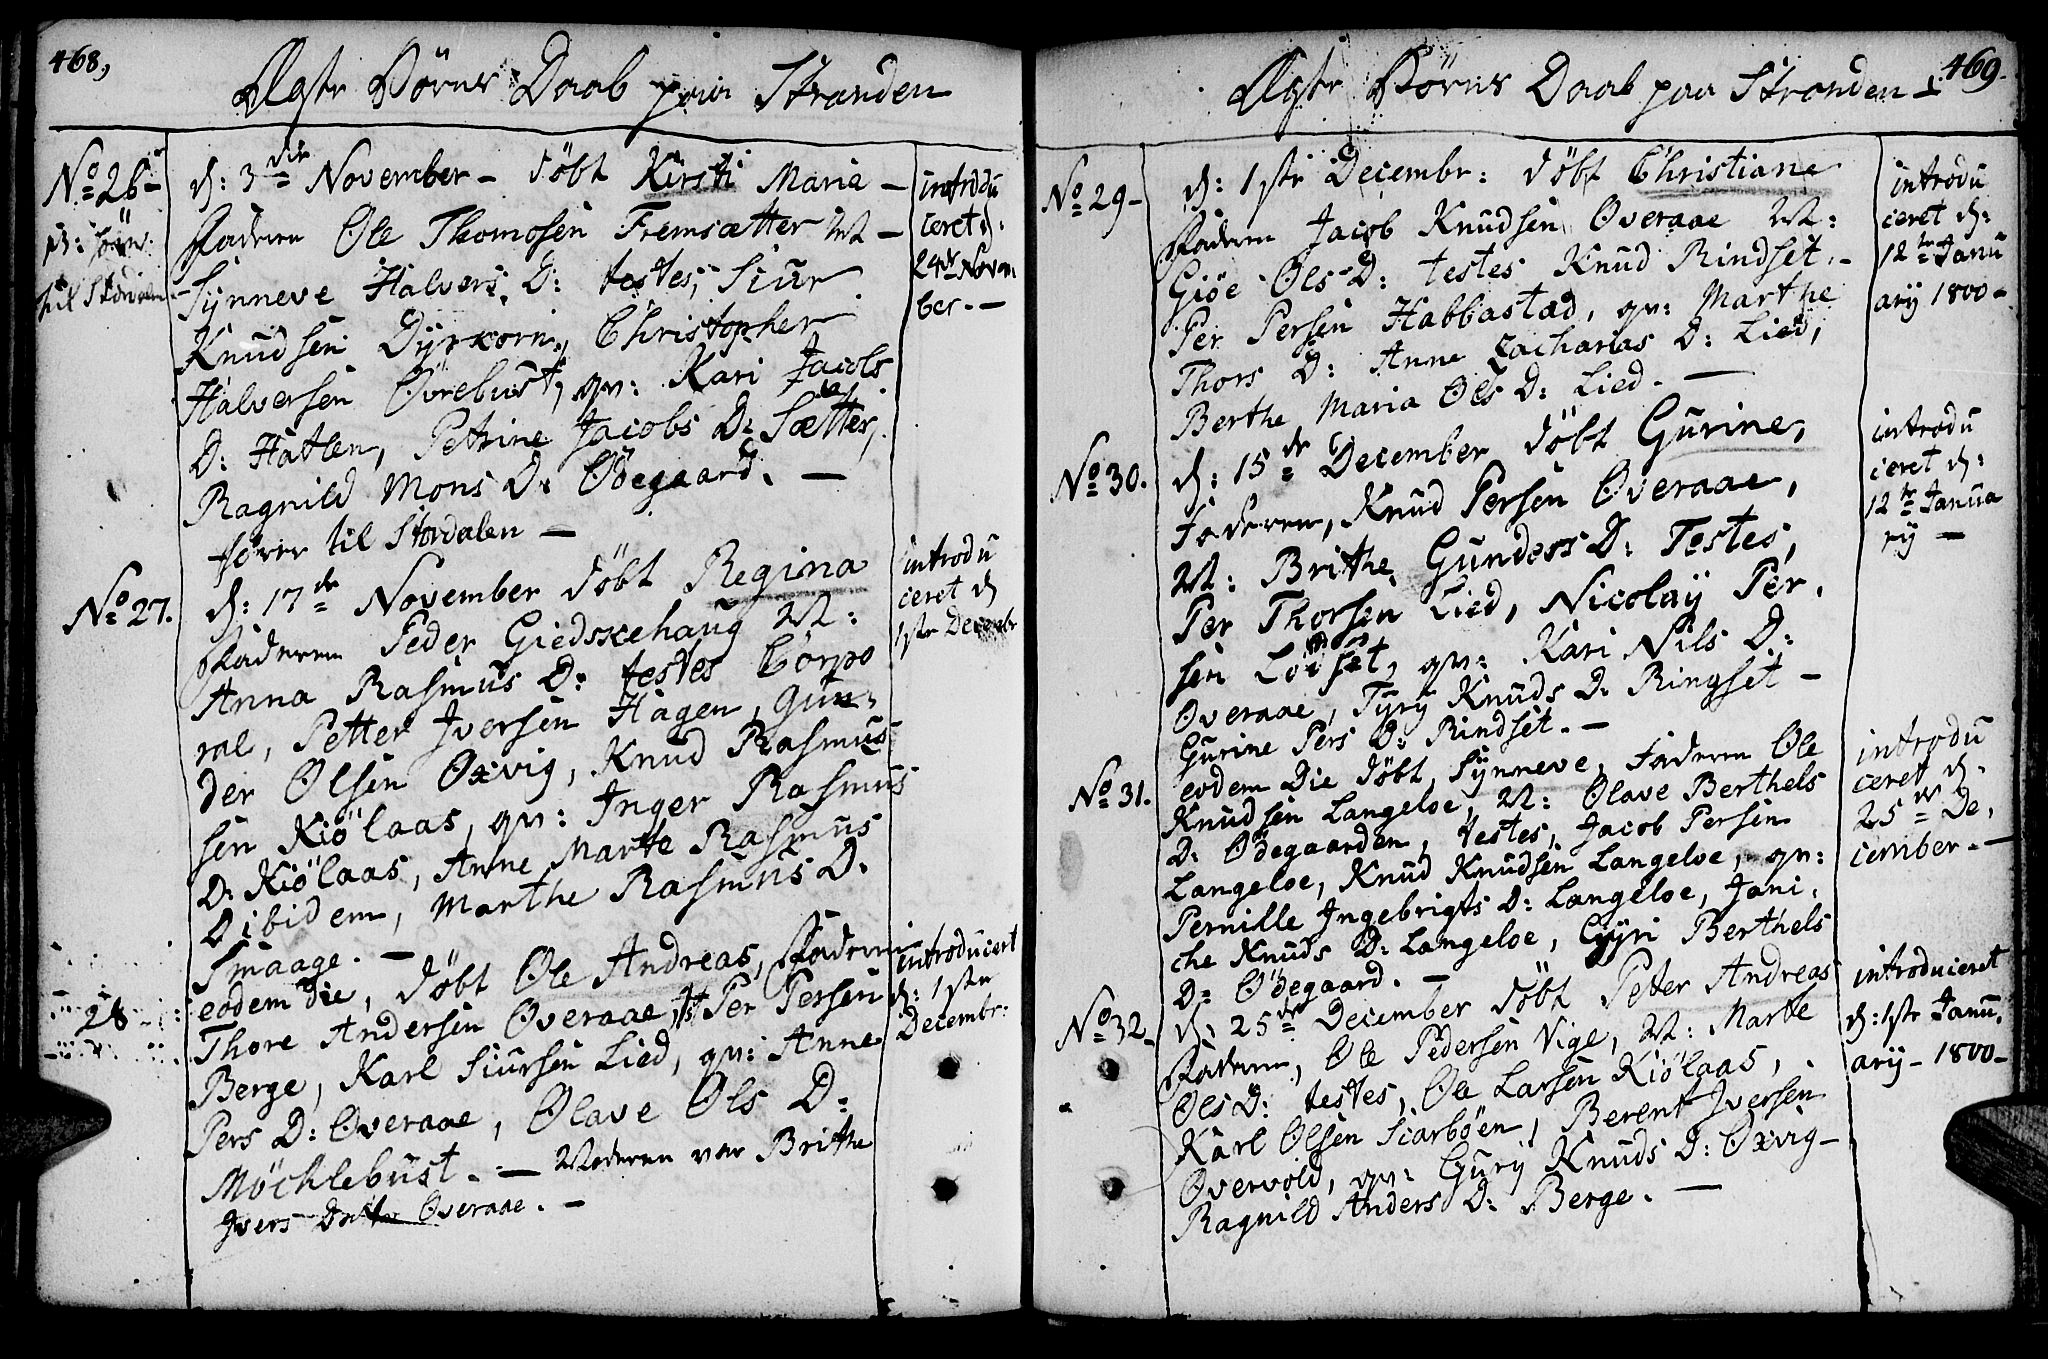 468,
Ægte Börns Daab paa Stranden
No 26-
hör
til Stordalen
d: 3die November - döbt Kirsti Maria -
Faderen Ole Thomasen Fremsætter M -
Synneve Halvers D: testes, Siur
Knudsen Dyrkorn, Christopher
Halversen Övrebust, qv: Kari Jacobs
D: Hatlen, Petrine Jacobs D: Sætter,
Ragnild Mons D: Ödegaard. -
hörer til Stordalen -
introdu
ceret d:
24de Novem
ber. -
No 27.
d: 17de November döbt Regina
Faderen Peder Giedskehaug M:
Anna Rasmus D: testes Corpo
ral, Petter Iversen Hagen, Gun-
der Olsen Oxvig, Knud Rasmus
sen Kiölaas, qv: Inger Rasmus
D: Kiölaas, Anne Marte Rasmus
D ibidem, Marthe Rasmus D.
Smaage. -
introdu
ceret d
1ste Decembr
28
eodem die, döbt Ole Andreas, Faderen
Thore Andersen Overaae, ts Per Persen
Berge, Karl Siursen Lied, qv: Anne
Pers D: Overaae, Olave Ols D:
Möchlebust. - Moderen var Brithe
Ivers Datter Overaae. -
introduceret
d: 1ste
Decembr:
469.
Ægte Börns Daab paa Stranden
No 29-
d: 1ste Decembr: döbt Christiane
Faderen Jacob Knudsen Overaae M:
Giöe Ols D: testes Knud Rindset. -
Per Persen Habbastad, qv: Marthe
Thors D: Anne Zacharias D: Lied,
Berthe Maria Ols D: Lied. -
introdu
ceret d:
12te Janu
arij 1800-
No 30.
d: 15de December döbt Gurine,
Faderen, Knud Persen Overaae,
M: Brithe Gunders D: Testes,
Per Thorsen Lied, Nicolaij Per.
sen Loiset, qv: Kari Nils D:
Overaae, Tyrij Knuds D: Ringset -
Gurine Pers D: Rindset. -
introdu
ceret d:
12te Janua
rij -
No 31.
eodem Die döbt, Synneve, Faderen Ole
Knudsen Langeloe, M: Olave Berthels
D: Ödegaarden, testes, Jacob Persen
Langeloe, Knud Knudsen Langeloe, qv:
Pernille Ingebrigts D: Langeloe, Jani.
che Knuds D: Langeloe, Gyri Berthels
D: Ödegaard. -
introdu
ceret d.
25de De,
cember. -
No 32-
d: 25de December döbt Peter Andreas
Faderen, Ole Pedersen Vige, M: Marte
Ols D: testes, Ole Larsen Kiölaas,
Karl Olsen Siarböen, Berent Iversen
Overvold, qv: Gurij Knuds D: Oxvig-
Ragnild Anders D: Berge. -
introduceret
d: 1ste Janu,
arij - 1800-